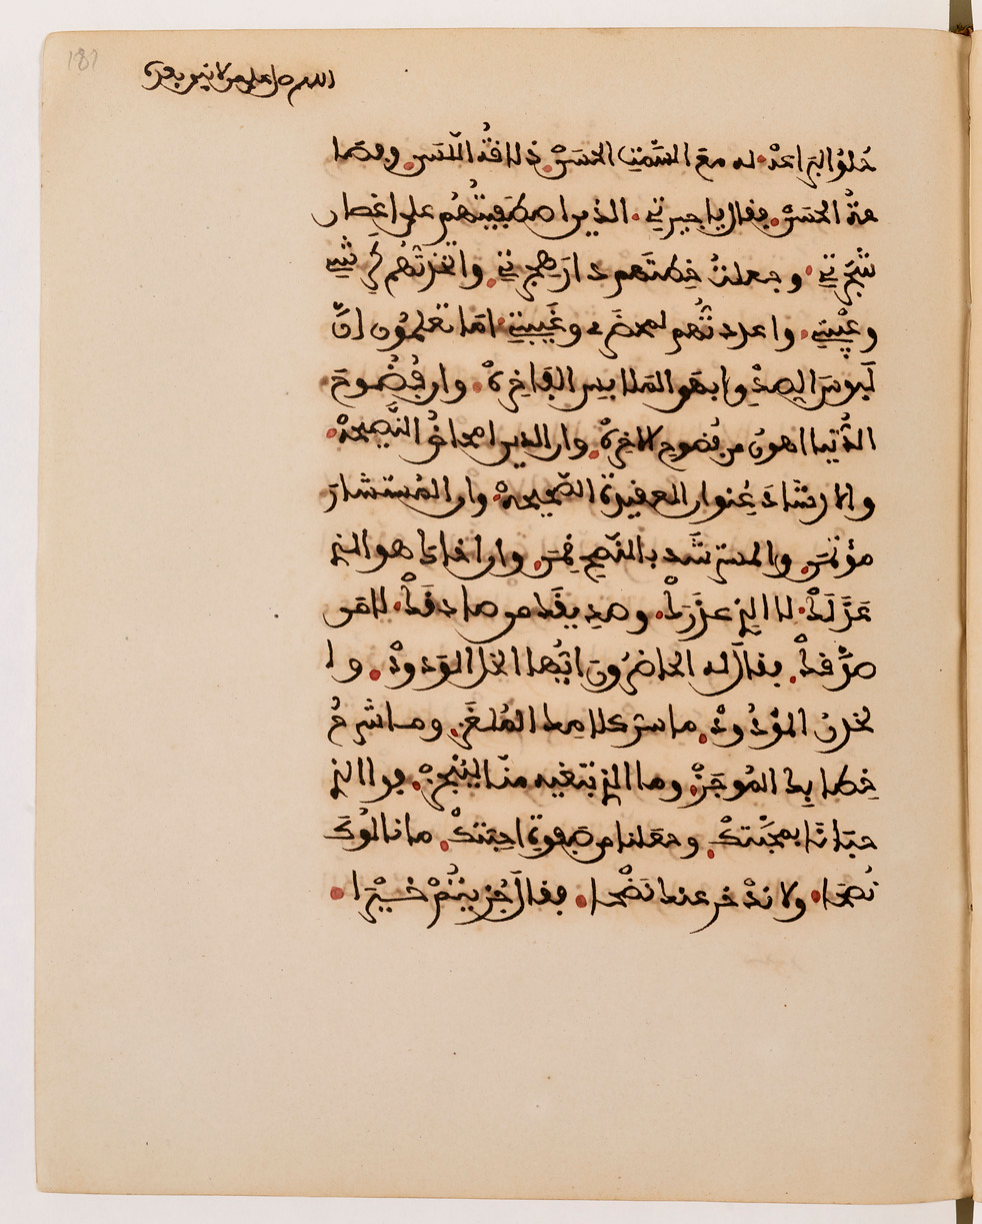 اللهم صل على من لا نبي بعده
حُلوُ البَراعَةْ له معَ السَّمْتِ الحَسَنْ ذلاقةُ اللَّسَنِ وفصَا
حةُ الحسَنْ فقال يا جيرتِي الذين اصطَفيتُهُم على اغصان
شجَرَتِي وجعلتُ خِطتَهم دارَ هِجرَتِي واتخذتُهُم كَرِشِي
وعَيْبتِي واعددتُهُم لمحضَرِي وغَيبتِي امَا تعلمُون انَّ
لَبوسَ الصِدْقِ ابهَى المَلابِسِ الفَاخِرَهْ وان فُضُوحَ
الدُّنيا اهونُ من فُضوحِ الاخِرَهْ وان الدين امحاضُ النَّصِيحهْ
والارشادَ عُنوان العقِيدةِ الصَّحِيحهْ وان المُستشَارَ
مؤتَمَنْ والمسترشِدَ بالنُّصحِ قمَنْ وان اخاك هو الذِي
عَذَلَكْ لا الذِي عذَرَكْ وصدِيقَك من صدَقَكْ لا من
صدَّقكْ فقال له الحاضرُونَ ايُّها الخل الوَدودْ وا
لخدنُ المَوْدُودْ ما سِرُّ كلامِك المُلغَزِ وما شرحُ
خِطابِك المُوجَزْ وما الذِي تبتغيه منّا ليُنْجَزْ فوالذِي
حبَانَا بمحبَّتكْ وجعَلنا من صَفوةِ احِبَّتكْ ما نالُوكَ
نُصحًا ولا ندَّخر عنك نَضْحا فقالَ جُزِيتُمْ خَيْرَا